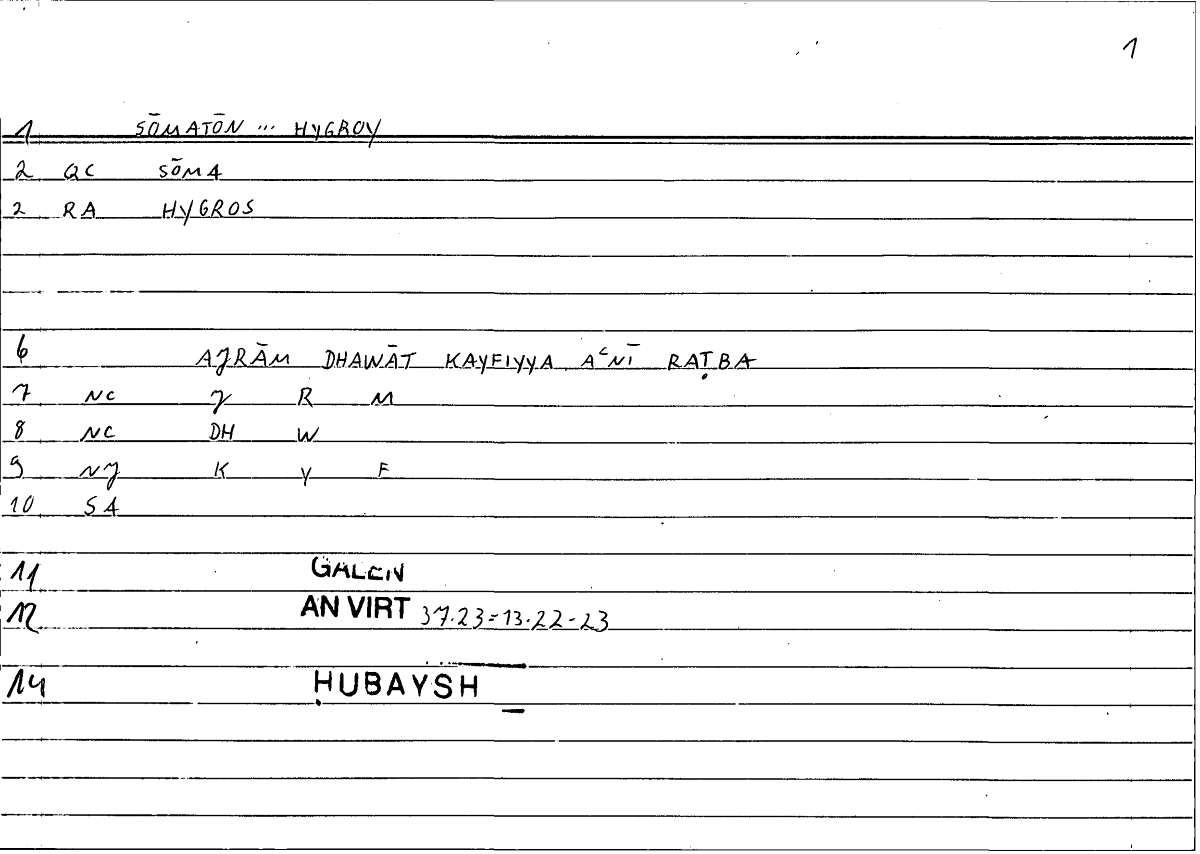 1
1 SŌMATŌN ... HYGROY
2 QC SŌMA
2 RA HYGROS
6 AJRĀM DHAWĀT KAYFIYYA AʿNĪ RAṬBA
7 NC J R M
8 NC DH W
9 NJ K Y F
10 SA
11 GALEN
12 AN VIRT 37.23=13.22-23
14 ḤUBAYSH